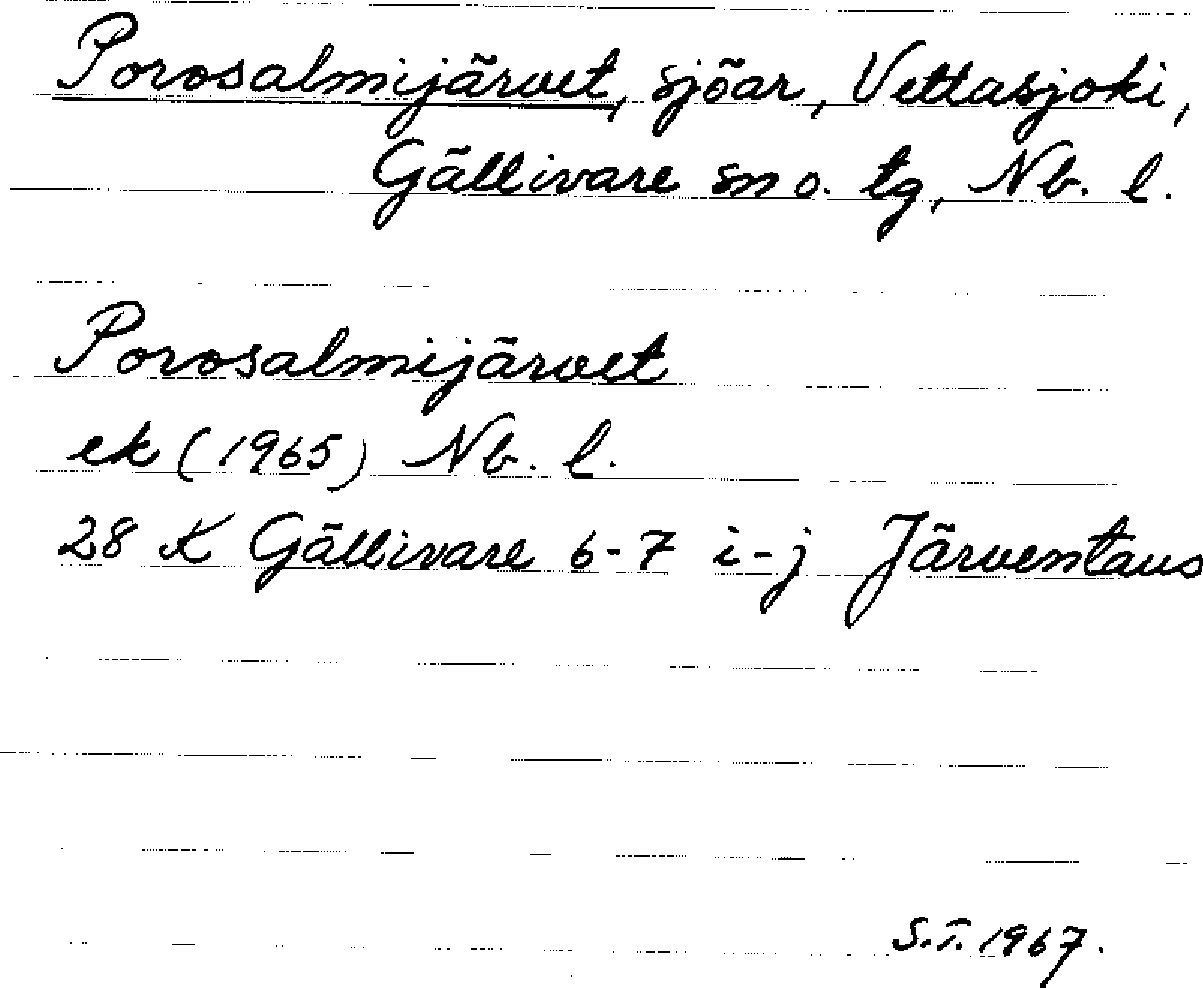 Porosalmijärvet, sjöar, Vettasjoki,
Gällivare sn o. tg, Nb. l.
Porosalmijärvet
ek (1965) Nb. l.
28 K Gällivare 6-7 i-j Järventaus
S.T. 1967.